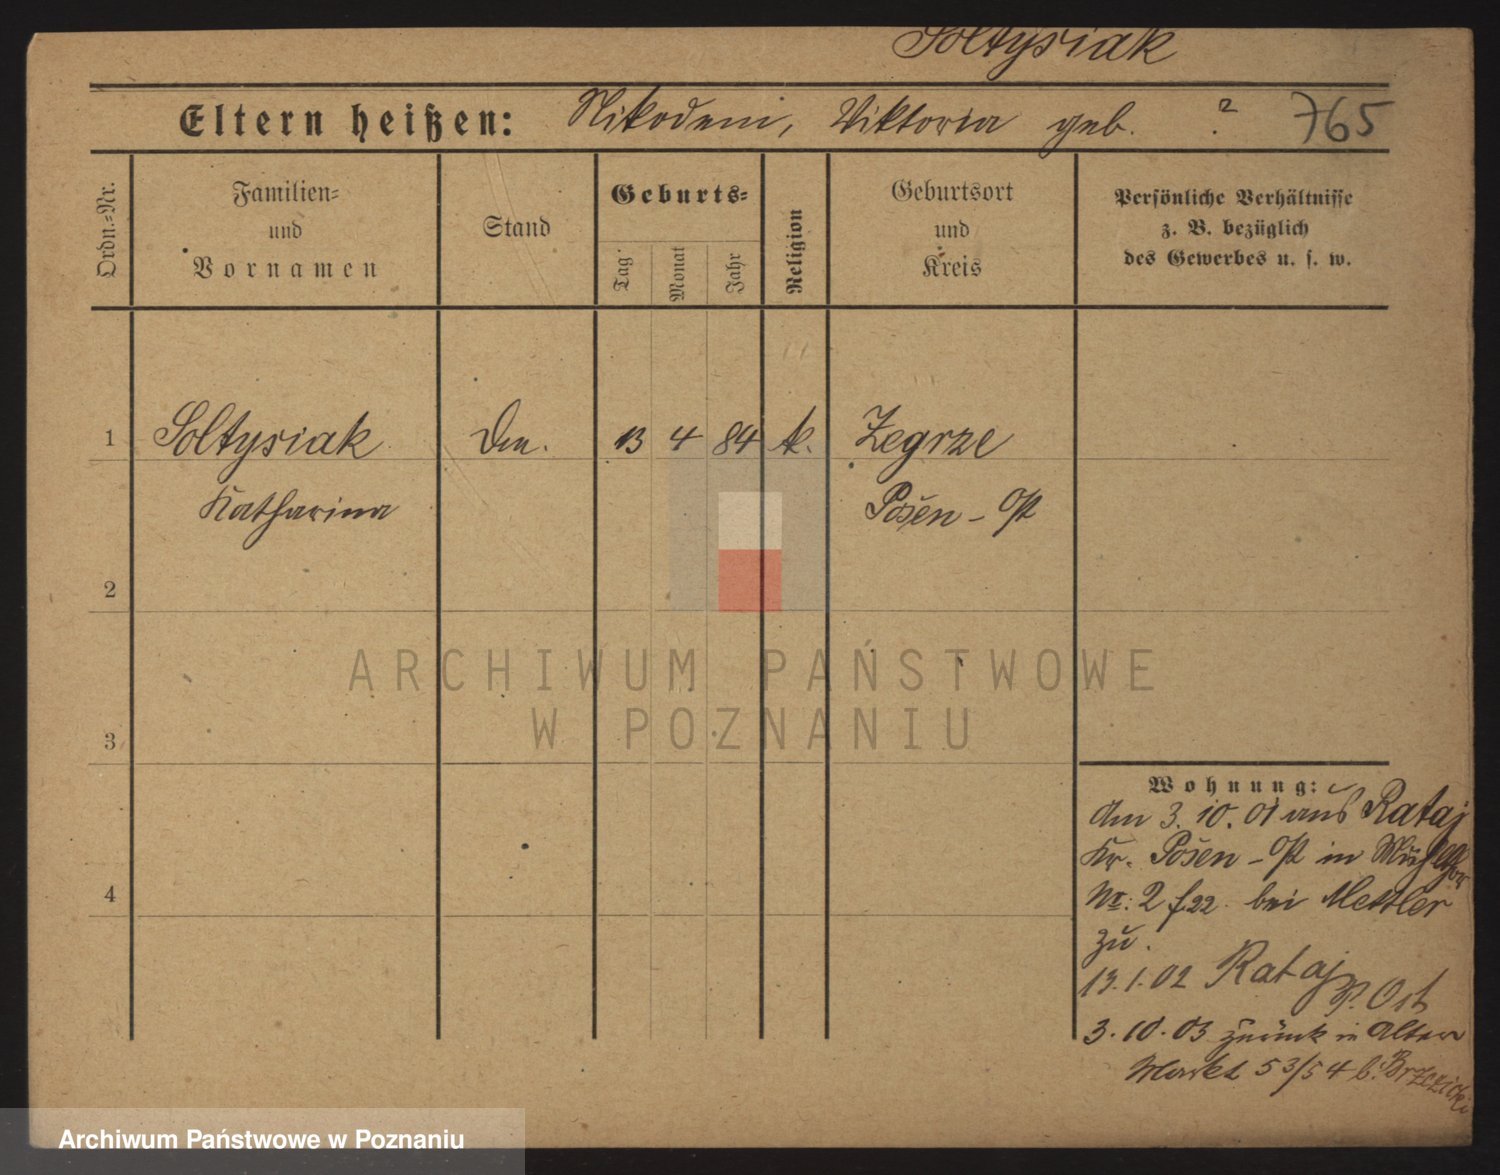 Soltysiak
Eltern heißen: Nikodem, Viktoria geb. ? 765
Ordn.=Nr.
Familien=
und
Vornamen
Stand
Geburts=
Tag
Monat
Jahr
Religion
Geburtsort
und
Kreis
Persönliche Verhältnisse
z. B. bezüglich
des Gewerbes u. s. w.
1 Soltysiak 13 4 84 k. Zegrze
Katharina Posen - Ost
2
ARCHIWUM PAŃSTWOWE
W POZNANIU
3
Wohnung:
Am 3. 10. 01 aus Rataj
Kr. Posen - Ost in
Nr: 2 f.22. bei Mettler
zu.
4
13.1.02 Rataj P. Ost
3.10.03 zurück in Alter
Markt 53/54 b. Brzezicki
Archiwum Państwowe w Poznaniu